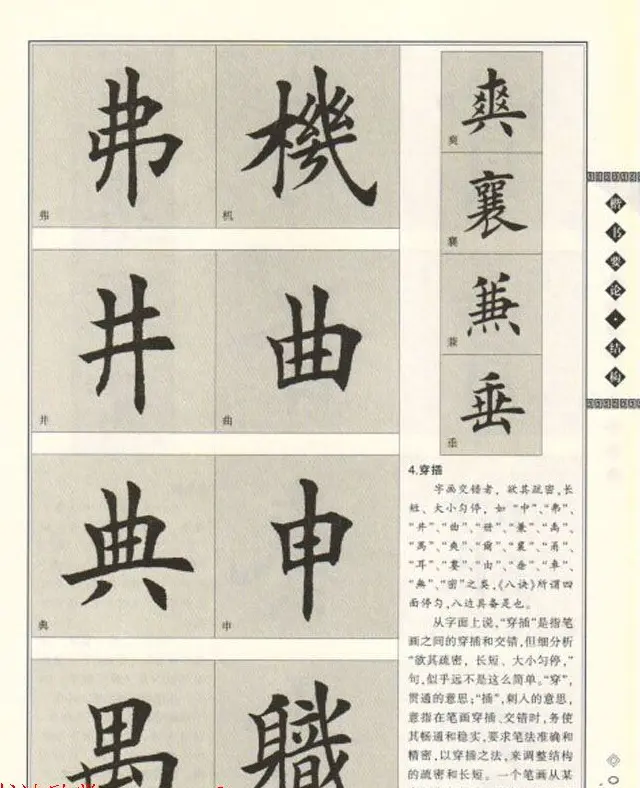 弗
弗
機
机
井
井
曲
曲
典
典
申
申
禺
職
爽
爽
襄
襄
兼
兼
垂
垂
楷书要论·结构
4.穿插
字画交错者，欲其疏密,长
短、大小匀停，如“中”、“弗”、
“井”、“曲”、“册”、“兼”、“禹”、
“禺”、“爽”、“爾”、“襄”、“甬”、
“耳”、“婁”、“由”、“垂”、“車”、
“無”、“密”之类，《八诀》所谓四
面停匀，八边具备是也。
从字面上说，“穿插”是指笔
画之间的穿插和交错，但细分析
“欲其疏密，长短、大小匀停，”
句，似乎远不是这么简单。“穿”，
贯通的意思；“插”，刺入的意思，
意指在笔画穿插、交错时，务使
其畅通和稳实，要求笔法准确和
精密，以穿插之法，来调整结构
的疏密和长短。一个笔画从某